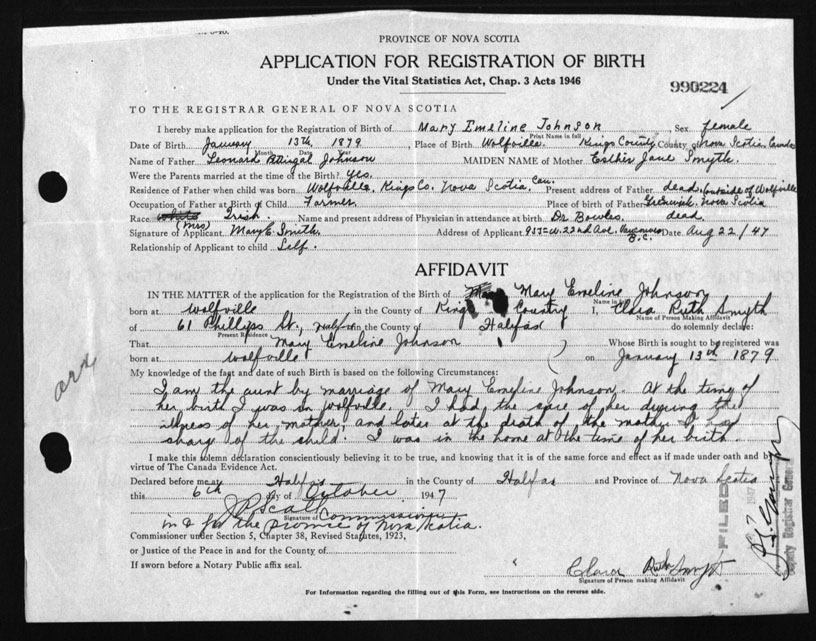 PROVINCE OF NOVA SCOTIA
APPLICATION FOR REGISTRATION OF BIRTH
Under the Vital Statistics Act, Chap. 3 Acts 1946
990224
TO THE REGISTRAR GENERAL OF NOVA SCOTIA
I hereby make application for the Registration of Birth of Mary Emeline Johnson, Sex female
Print Name in full
Date of Birth January 13th, 1879, Place of Birth Wolfville. Kings County County of Nova Scotia, Canada
Month Date Year
Name of Father Leonard Johnson MAIDEN NAME of Mother Esther Jane Smyth.
Were the Parents married at time of the Birth? Yes.
Residence of Father when child was born Wolfville, Kings Co. Nova Scotia, Can. Present address of Father dead. (outside of Wolfville
Occupation of Father at Birth of Child Farmer. Place of birth of Father Greenwich, Nova Scotia
Race White Irish. Name and present address of Physician in attendance at birth Dr Bowles. dead.
(Mrs)
Signature of Applicant Mary E. Smith. Address of Applicant 937 W. 22nd Ave. Vancouver B.C. Date Aug 22/47
Relationship of Applicant to child Self.
AFFIDAVIT
IN THE MATTER of the application for the Registration of the Birth of Mary Emeline Johnson
Name in full
born at Wolfville in the County of Kings Country I, Clara Ruth Smyth
Name of Person Making Affidavit
of 61 Phillips St., Halifax in the County of Halifax do solemnly declare:
Present Residence
That Mary Emeline Johnson Whose Birth is sought to be registered was
born at Wolfville on January 13th 1879
My knowledge of the fact and date of such Birth is based on the following Circumstances:
I am the aunt by marriage of Mary Emeline Johnson. At the time of
her birth I was in Wolfville. I had the care of her during the
illness of her mother, and later at the death of the mother I had
charge of the child. I was in the home at the time of her birth.
I make this solemn declaration conscientiously believing it to be true, and knowing that it is of the same force and effect as if made under oath and by
virtue of The Canada Evidence Act.
Declared before me at Halifax in the County of Halifax and Province of Nova Scotia
this 6th day of October 1947
Signature of Commissioner
in & for the province of Nova Scotia.
Commissioner under Section 5, Chapter 38, Revised Statutes, 1923,
or Justice of the Peace in and for the County of
If sworn before a Notary Public affix seal.
Clara Ruth Smyth
Signature of Person making Affidavit
For Information regarding the filling out of this Form, see instructions on the reverse side.
FILED
Deputy Registrar General